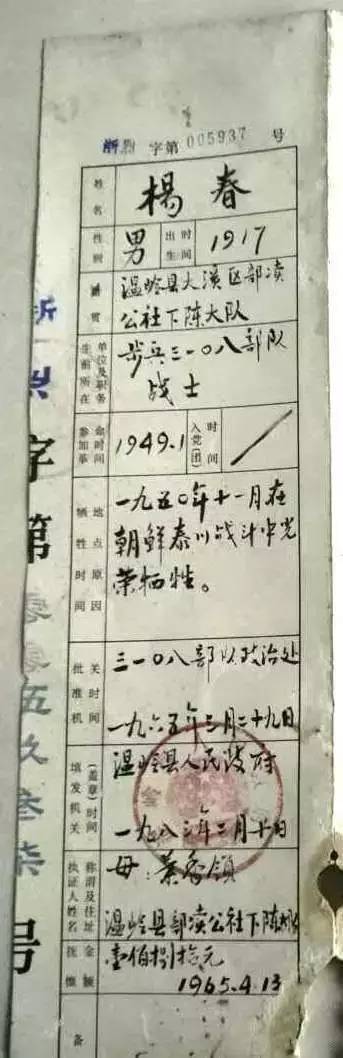 浙烈 字第 005937 号
姓名 楊春
性别 男 出生时间 1917
籍贯 温岭县大溪区部渎
公社下陈大队
生前所在单位及职务 步兵三一〇八部队
战士
参加革命时间 1949.1 入党(团)时间 /
牺牲时间地点原因 一九五〇年十一月在
朝鲜泰川战斗中光
荣牺牲。
批准机关时间 三一〇八部队政治处
一九六五年三月二十九日
填发机关(盖章)时间 温岭县人民政府
一九八三年二月十日
执证人姓名称谓及住址 母:
温岭县部渎公社下陈
抚恤金额 壹佰捌拾元
1965.4.13
备
字第零零伍玖叁柒号